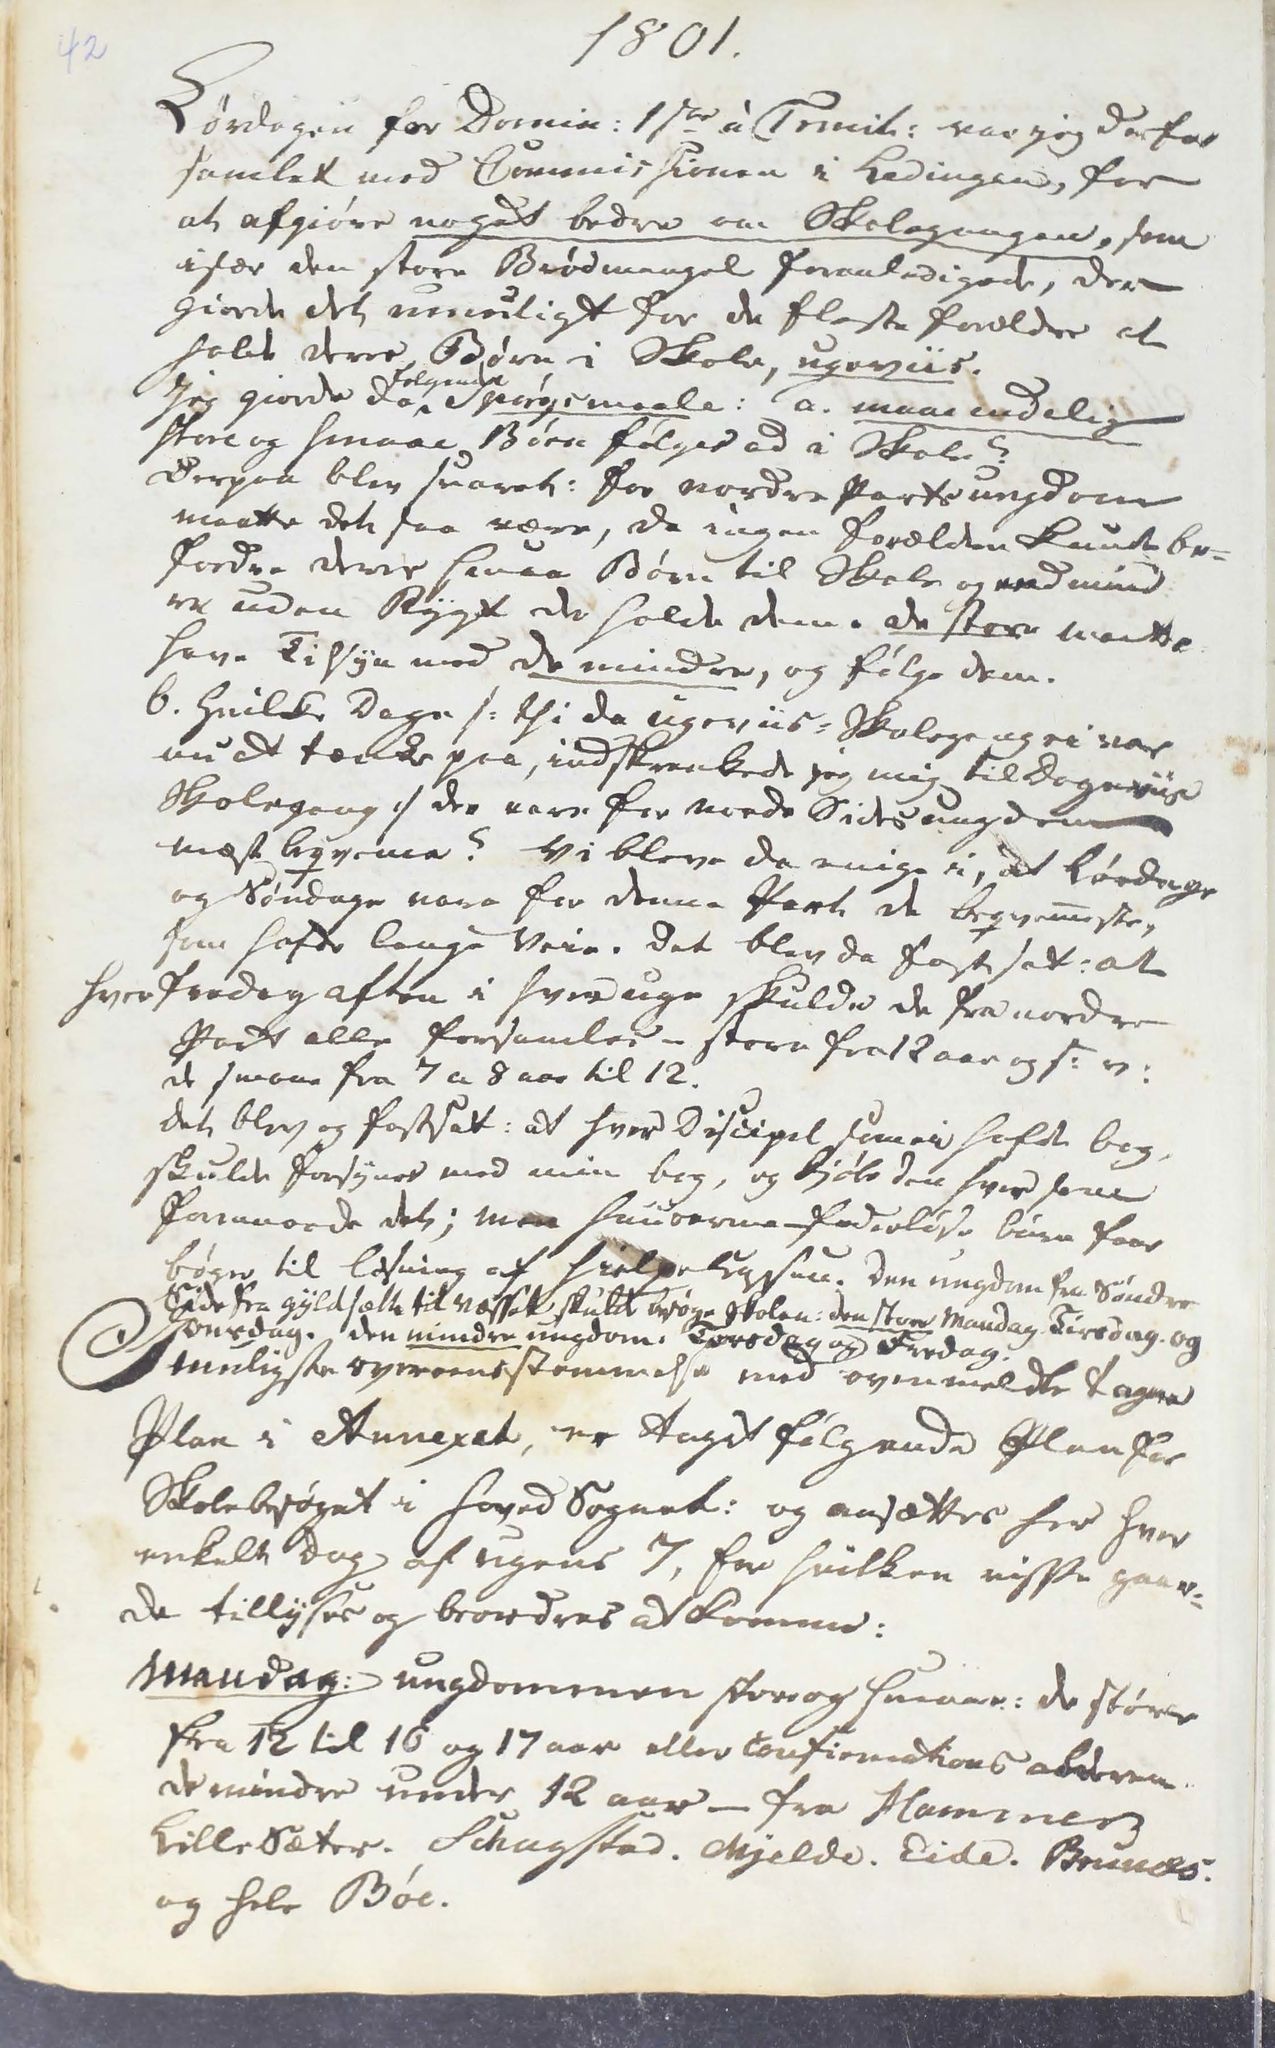 42
1801.
Lørdagen før Domin: 1ste à Trinit: var jeg der for
samlet med Commissionen i Lødingen, for
at afgiøre noget bedre om Skolegangen, som
især den store Brødmangel foranledigede, der
giorde det umuligt for de fleste forældre at
holde deres Børn i Skole, ugeviis.
Jeg giorde da følgende Spørgsmaale: a. maae endelig
store og smaae Børn følges ad i Skole?
Derpaa blev svaret: for nordre Parts ungdom
maatte det saa være, da ingen forældre kunde be-
fordre deres smaae Børn til Skole og end mind
re uden Rygt der holde dem. de store maatte
have Tilsyn med de mindre, og følge dem.
b. hvilke Dage /: thi da ugeviis-Skolegang ei var
nu at tænke paa, indskrænkede jeg mig til Dageviis
Skolegang :/ der vare for nordre Sides ungdom
mæst beqvemme? Vi bleve da enige i, at Lørdage
og Søndage vare for denne Part de beqvemmeste,
som hafde lange Veie. Det blev da fastsat: at
hver Fredag aften i hver uge skulde de fra nordre
Part alle forsamles – store fra 12 aar og s: v:
de smaae fra 7 a 8 aar til 12.
det blev og fastsat: at hver Discipel som ei hafde bog,
skulde forsynes med min bog, og kjøbe den hver som
formaaede det; men faderløse børn faae
bøger til læsning af hielpe Cassen. Den ungdom fra Søndre
Side fra gyldsætte til Næsset skulde besøge Skolen: den store Mandag. Tirsdag. og
Onsdag. den mindre ungdom. Torsdag og Fredag.
I muligste overeensstemmelse med ovenmeldte tagne
Plan i Annexet, er taget følgende Plan for
Skolebesøget i hoved Sognet: og ansættes her hver
enkelt dag af ugens 7, for hvilken visse gaar-
de tillyses og beordres at komme:
Mandag: ungdommen store og smaae: de større
fra 12 til 16 og 17 aar eller Confirmations alderen
de mindre under 12 aar – fra Hammer
Lille Sæter. Schugstad. Mjelde. Eide. Brunæs.
og hele Bøe.